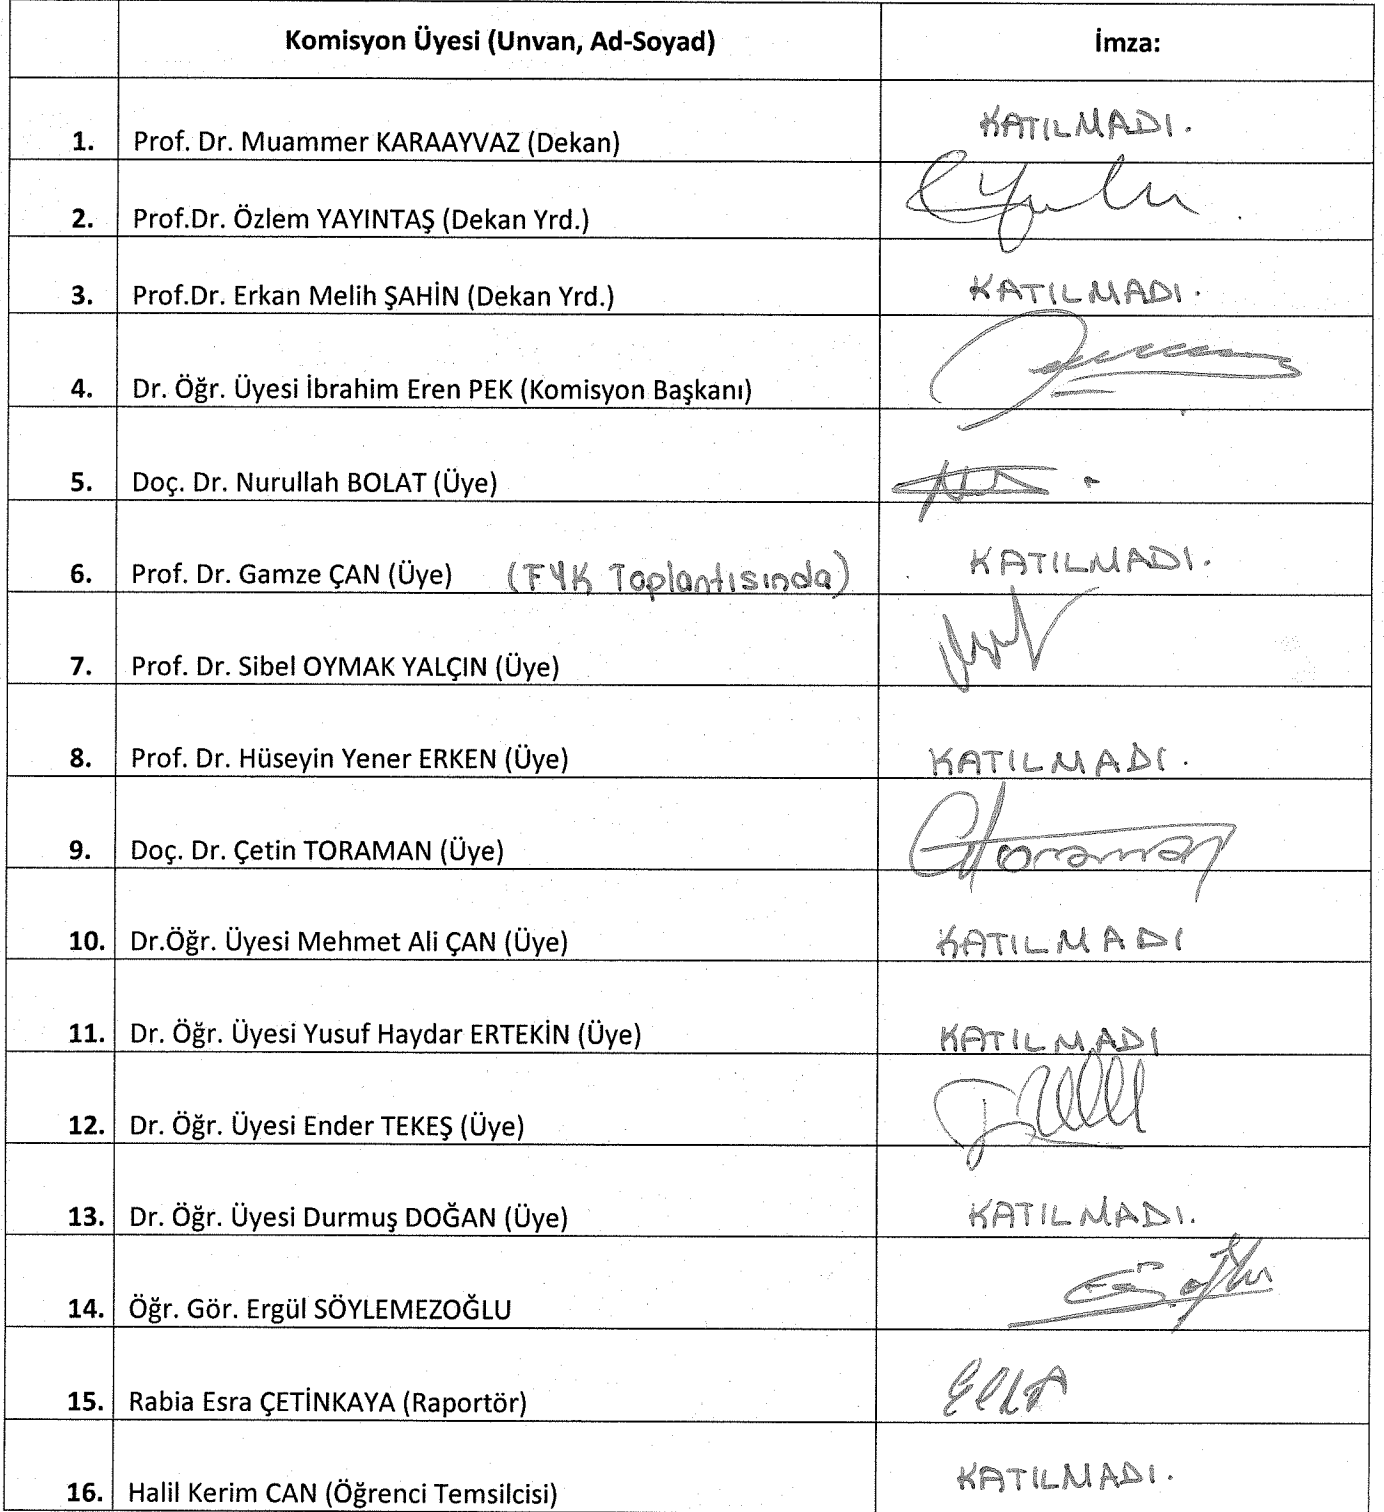 Komisyon Üyesi (Unvan, Ad-Soyad) İmza:
1. Prof. Dr. Muammer KARAAYVAZ (Dekan) KATILMADI.
2. Prof.Dr. Özlem YAYINTAŞ (Dekan Yrd.)
3. Prof.Dr. Erkan Melih ŞAHİN (Dekan Yrd.) KATILMADI.
4. Dr. Öğr. Üyesi İbrahim Eren PEK (Komisyon Başkanı)
5. Doç. Dr. Nurullah BOLAT (Üye)
6. Prof. Dr. Gamze ÇAN (Üye) (FYK Toplantısında) KATILMADI.
7. Prof. Dr. Sibel OYMAK YALÇIN (Üye)
8. Prof. Dr. Hüseyin Yener ERKEN (Üye) KATILMADI.
9. Doç. Dr. Çetin TORAMAN (Üye)
10. Dr.Öğr. Üyesi Mehmet Ali ÇAN (Üye) KATILMADI
11. Dr. Öğr. Üyesi Yusuf Haydar ERTEKİN (Üye) KATILMADI
12. Dr. Öğr. Üyesi Ender TEKEŞ (Üye)
13. Dr. Öğr. Üyesi Durmuş DOĞAN (Üye) KATILMADI.
14. Öğr. Gör. Ergül SÖYLEMEZOĞLU
15. Rabia Esra ÇETİNKAYA (Raportör)
16. Halil Kerim CAN (Öğrenci Temsilcisi) KATILMADI.